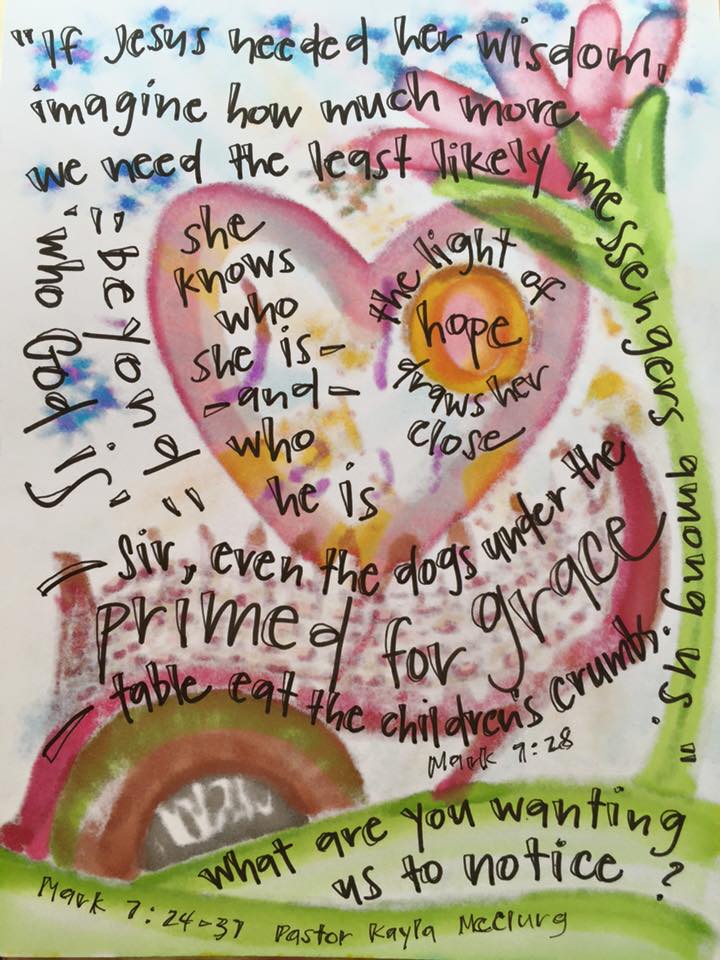 "If Jesus needed her wisdom,
imagine how much more
we need the least likely messengers among us."
who God is
"beyond"
she
knows
who
she is -
- and -
who
he is
the light of
hope
draws her
close
Sir, even the dogs under the
primed for grace
table eat the children's crumbs.
Mark 7:28
what are you wanting
us to notice?
Mark 7:24-37 Pastor Kayla McClurg